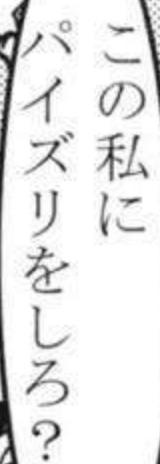 この私に
パイズリをしろ？